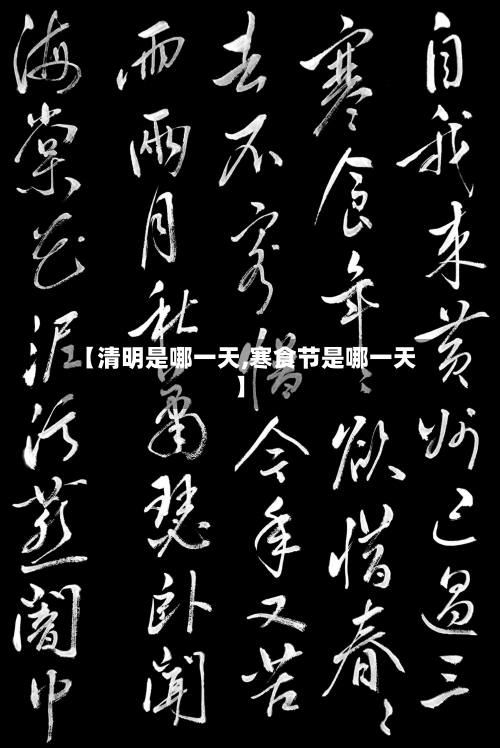 自我來黄州已過三
寒食年〻欲惜春〻
去不容惜今年又苦
雨兩月秋蕭瑟卧聞
海棠花泥污燕闇中
【清明是哪一天,寒食节是哪一天
】